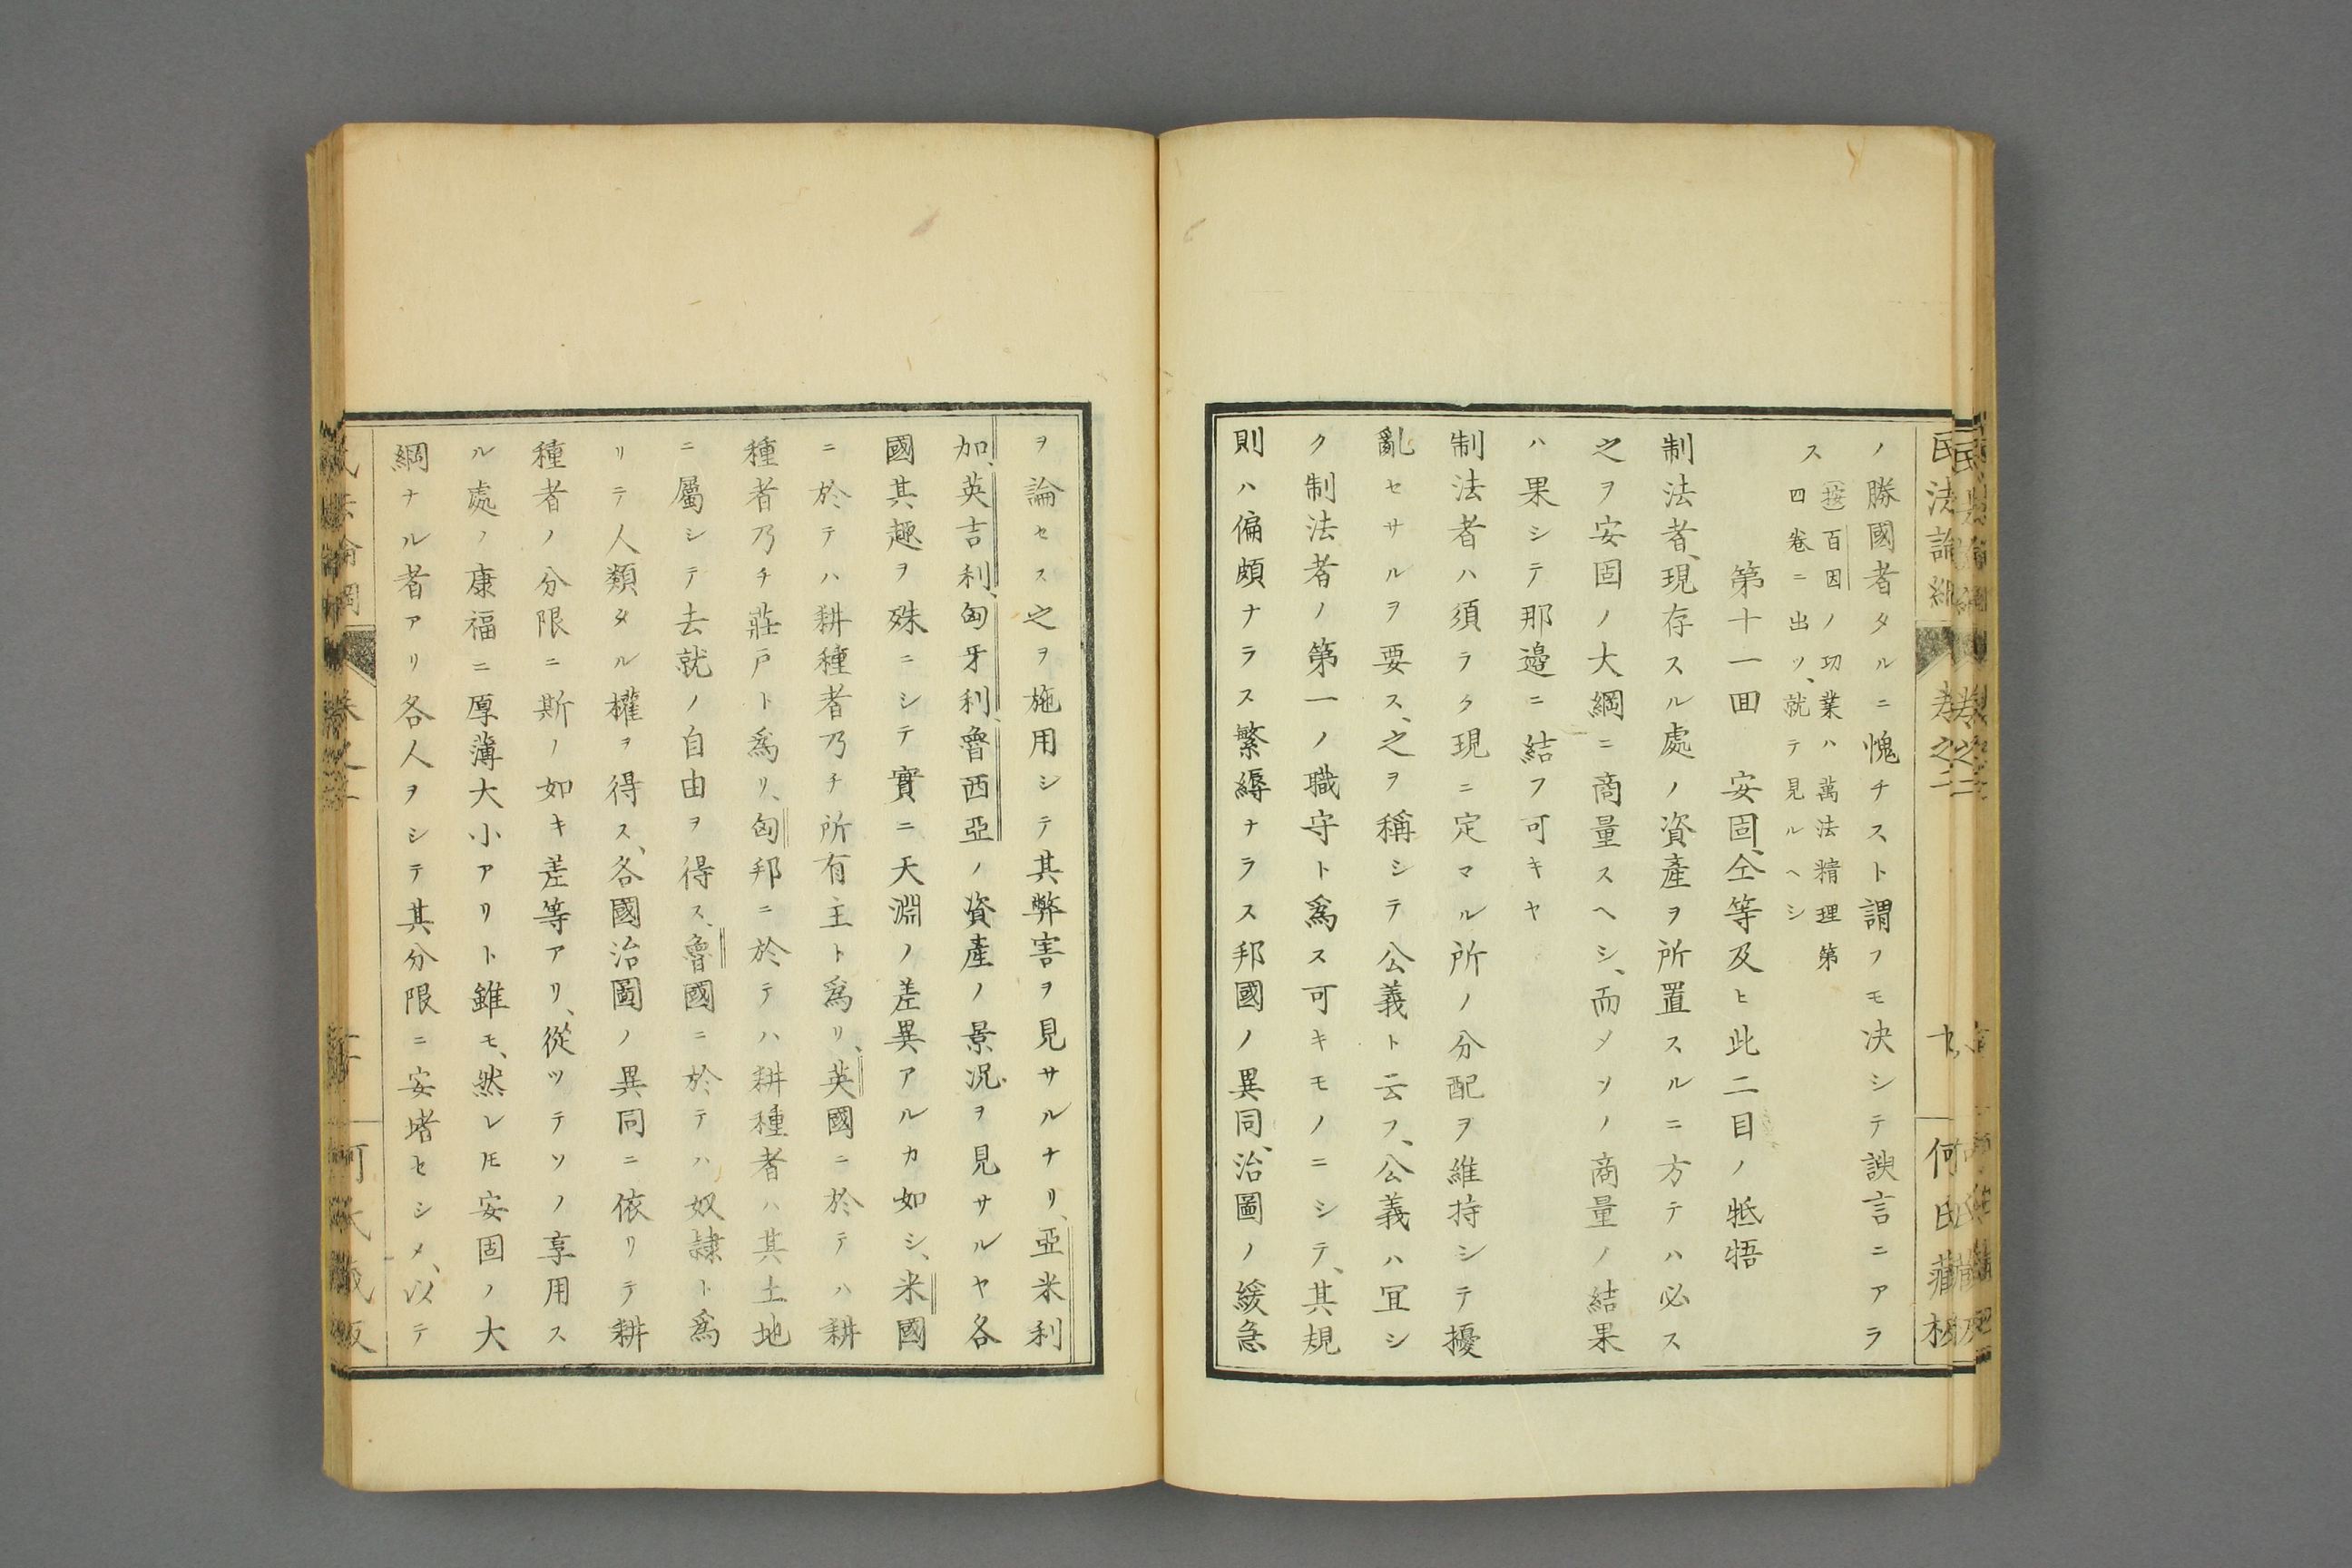 ノ勝國者タルニ愧チスト謂フモ决シテ諛言ニアラ
ス
(按)百因ノ功業ハ萬法精理第
四卷ニ出ツ、就テ見ルヘシ
第十一囬 安固、仝等及ヒ此二目ノ牴牾
制法者、現存スル處ノ資產ヲ所置スルニ方テハ必ス
之ヲ安固ノ大綱ニ商量スヘシ、而メソノ商量ノ結果
ハ果シテ那邉ニ結フ可キヤ
制法者ハ須ラク現ニ定マル所ノ分配ヲ維持シテ擾
亂セサルヲ要ス、之ヲ稱シテ公義ト云フ、公義ハ冝シ
ク制法者ノ第一ノ職守ト爲ス可キモノニシテ、其規
則ハ偏頗ナラス繁縟ナラス邦國ノ異同、治圖ノ緩急
ヲ論セス之ヲ施用シテ其弊害ヲ見サルナリ、亞米利
加、英吉利、匈牙利、魯西亞ノ資產ノ景況ヲ見サルヤ各
國其趣ヲ殊ニシテ實ニ天淵ノ差異アルカ如シ、米國
ニ於テハ耕種者乃チ所有主ト爲リ、英國ニ於テハ耕
種者乃チ莊戸ト爲リ、匈邦ニ於テハ耕種者ハ其土地
ニ屬シテ去就ノ自由ヲ得ス、魯國ニ於テハ奴隷ト爲
リテ人類タル權ヲ得ス、各國治圖ノ異同ニ依リテ耕
種者ノ分限ニ斯ノ如キ差等アリ、從ツテソノ享用ス
ル處ノ康福ニ厚薄大小アリト雖モ、然レ𪜈安固ノ大
綱ナル者アリ各人ヲシテ其分限ニ安堵セシメ、以テ